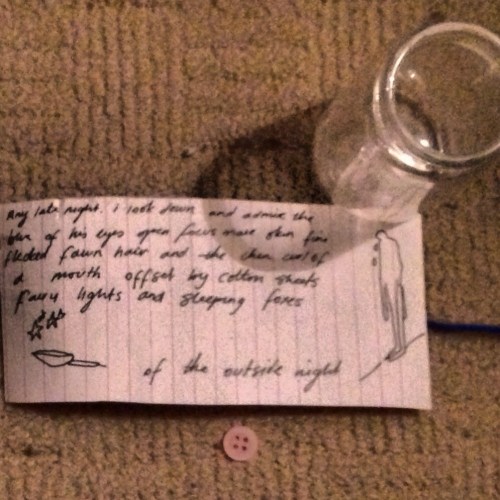 Any late night. i look down and admire the
blur of his eyes open focus more skin fine
flecked fawn hair and the curl of
a mouth offset by cotton sheets
fairy lights and sleeping foxes
of the outside night